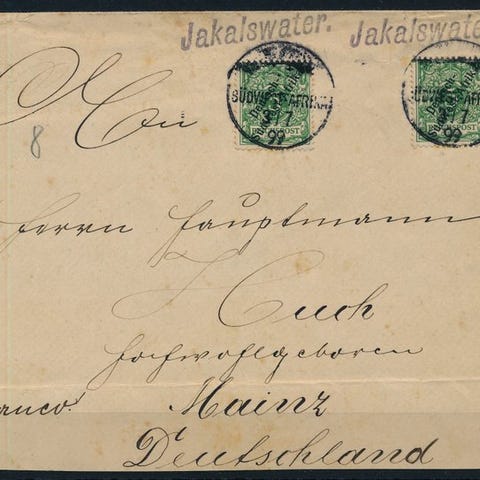 Jakalswater. Jakalswater.
SÜDWEST-AFRIKA SÜDWEST-AFRIKA
7 7
99 99
An
8
Herrn Hauptmann
Huch
Hochwohlgeboren
Franco. Mainz
Deutschland